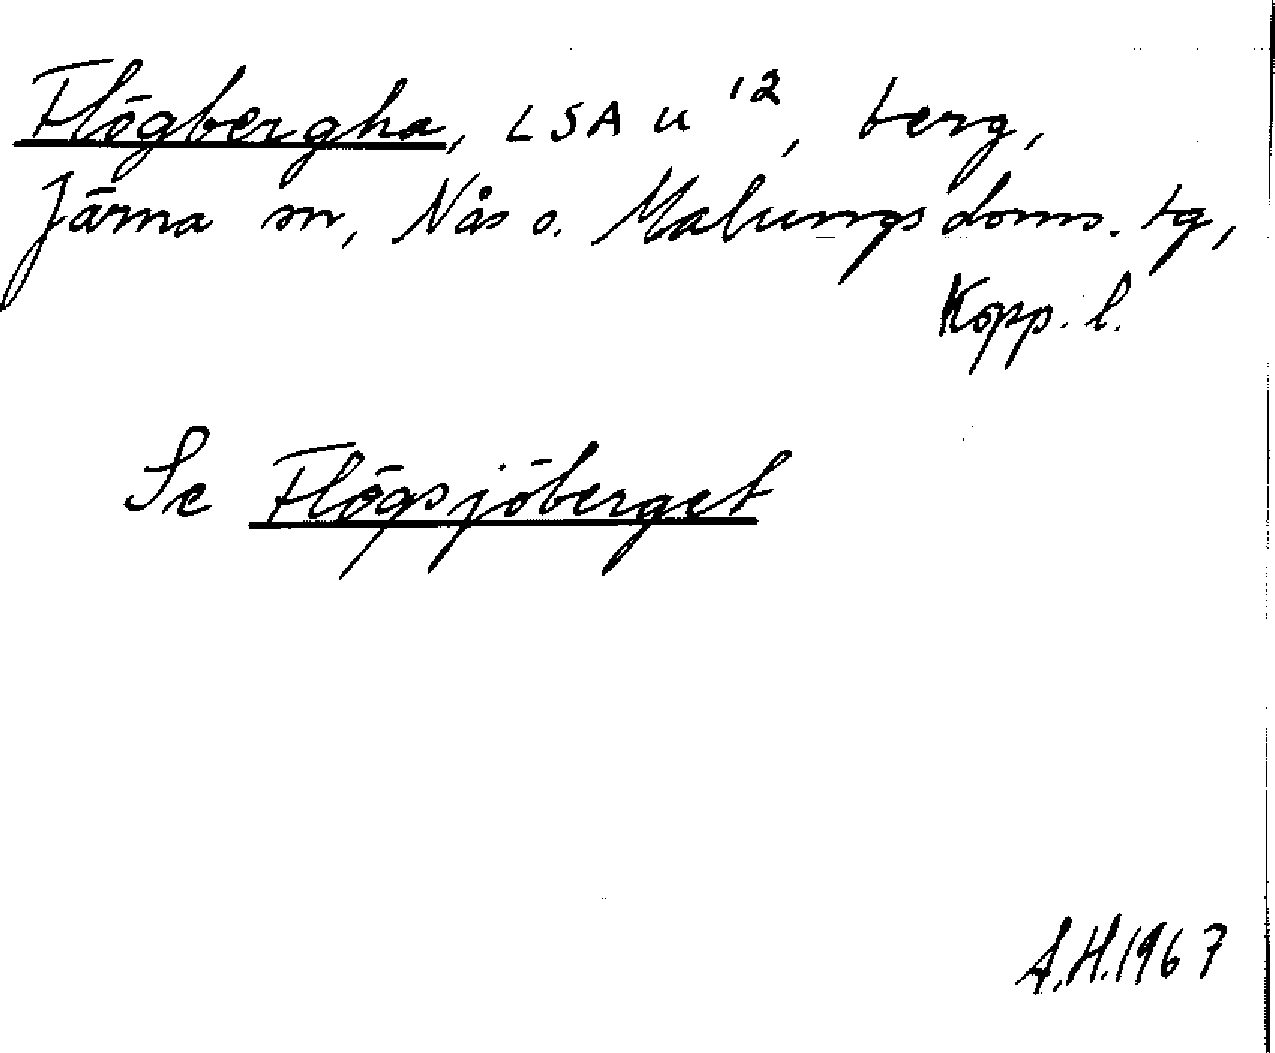 Flögbergha, LSA u 12, berg,
Järna sn, Nås o. Malungs doms. tg,
Kopp. l.
Se Flögsjöberget
A.H. 1967